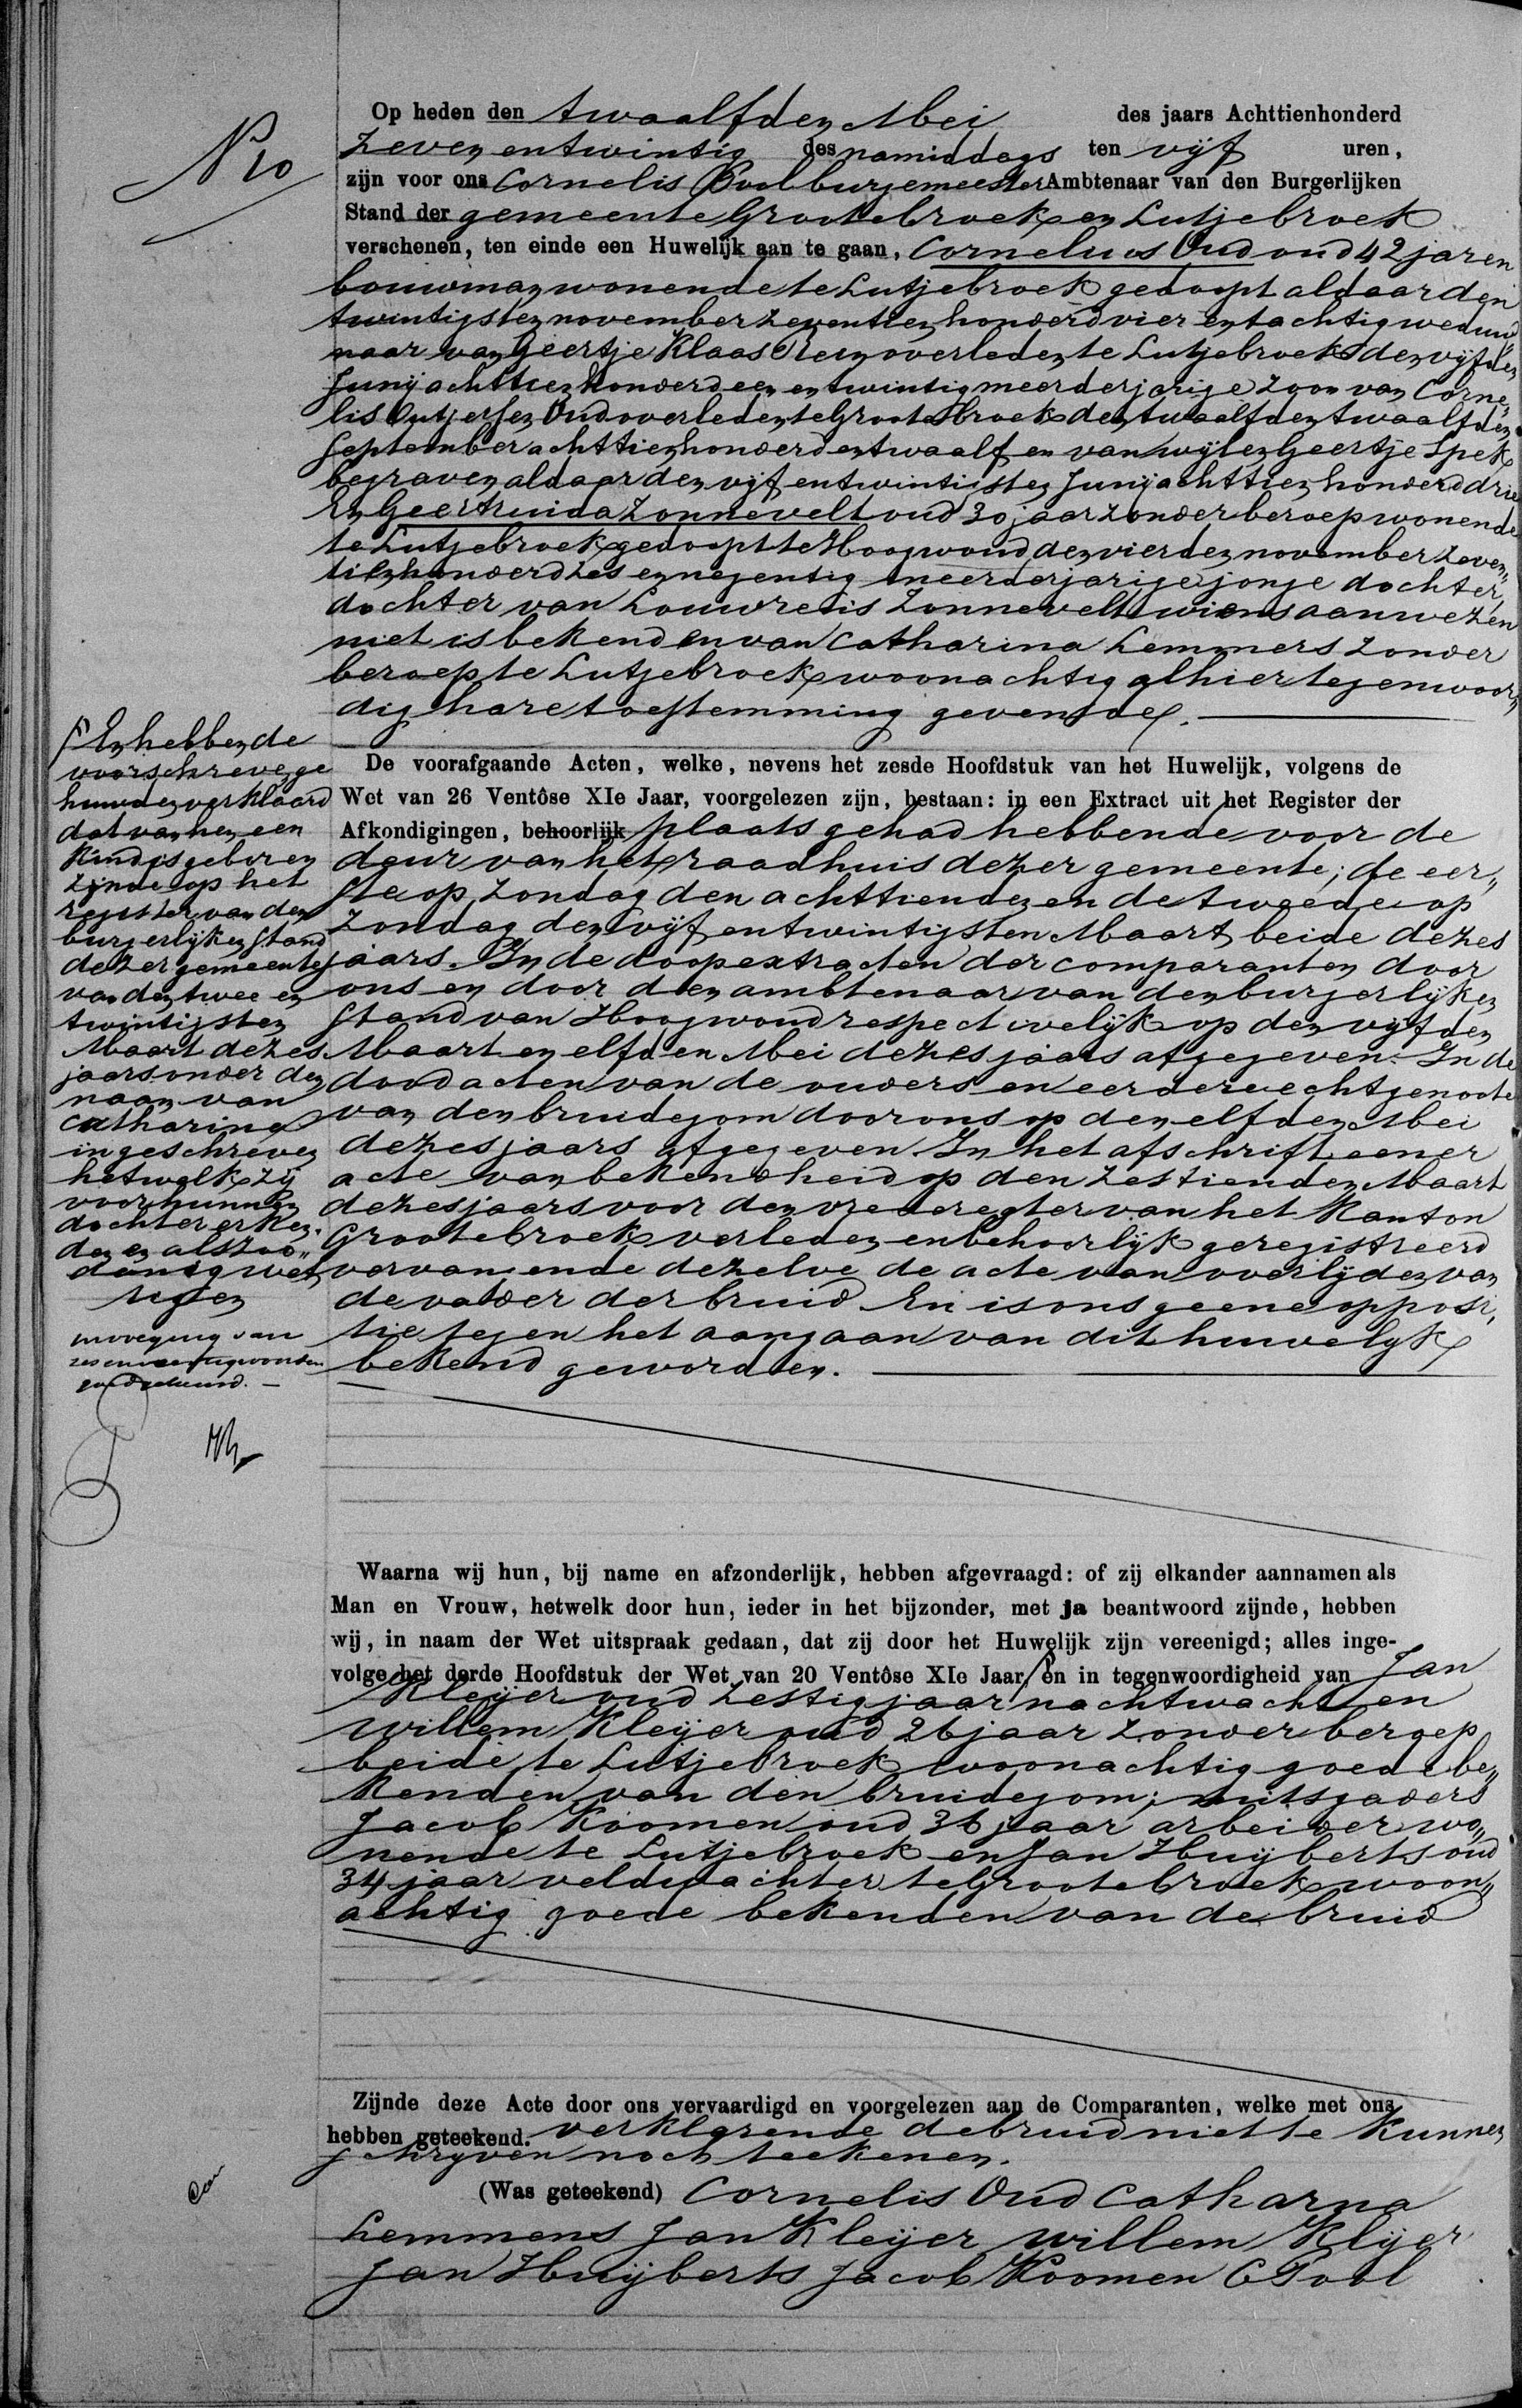 No 10
Op heden den twaalfden Mei des jaars Achttienhonderd
zeven en twintig des namiddags ten vijf uren,
zijn voor ons Cornelis Pool burgemeester Ambtenaar van den Burgerlijken
Stand der gemeente Grootebroek en Lutjebroek
verschenen, ten einde een Huwelijk aan te gaan, Cornelis Oud oud 42 jaren
bouwman wonende te Lutjebroek gedoopt aldaar den
twintigsten november zeventien honderd vier en tachtig weduw„
naar van Geertje Klaas overleden te Lutjebroek den vijfden
Junij achttien honderd een en twintig meerderjarige zoon van Corne„
lis Outjersen Oud overleden te Grootebroek den twaalfden twaalfden
September achttienhonderd en twaalf en van wijlen Geertje Spek
begraven aldaar den vijf en twintigsten Junij achttien honderd drie
En Geertruida Zonnevelt oud 30 jaar zonder beroep wonende
te Lutjebroek gedoopt te Hoogwoud den vierden november zeven„
tienhonderd zes en negentig meerderjarige jonge dochter,
dochter van Louwrens Zonnevelt wiens aanwezen
niet is bekend en van Catharina Lemmers zonder
beroep te Lutjebroek woonachtig alhier tegenwoor„
dig hare toestemming gevende.
De voorafgaande Acten, welke, nevens het zesde Hoofdstuk van het Huwelijk, volgens de
Wet van 26 Ventôse XIe Jaar, voorgelezen zijn, bestaan: in een Extract uit het Register der
Afkondigingen, behoorlijk plaats gehad hebbende voor de
deur van het raadhuis dezer gemeente; de eer„
ste op zondag den achttienden en de tweede op
zondag den vijf en twintigsten Maart beide dezes
jaars. In de doopextracten der comparanten door
ons en door den ambtenaar van den burgerlijken
stand van Hoogwoud respectivelijk op den vijfden
Maart en elfden Mei dezes jaars afgegeven. In de
doodacten van de ouders en eerdere echtgenoote
van den bruidegom door ons op den elfden Mei
dezes jaars afgegeven In het afschrift eener
acte van bekendheid op den zestienden Maart
dezes jaars voor den vrederegter van het Kanton
Grootebroek verleden en behoorlijk geregistreerd
vervangende dezelve de acte van overlijden van
de vader der bruid. En is ons geene opposi„
tie tegen het aangaan van dit huwelijk
bekend geworden.
En hebbende
voorschreven ge
huwden verklaard
dat van hen een
kind is geboren
zijnde op het
register van den
burgerlijken stand
dezer gemeente
van den twee en
twintigsten
Maart dezes
jaars onder den
naam van
Catharina
ingeschreven
hetwelk zij
voor hunnen
dochter erken„
den en alszoo„
danig wet
tigen
invoeging van
zes en veertig woorden
goedgekeurd.
Waarna wij hun, bij name en afzonderlijk, hebben afgevraagd: of zij elkander aannamen als
Man en Vrouw, hetwelk door hun, ieder in het bijzonder, met ja beantwoord zijnde, hebben
wij, in naam der Wet uitspraak gedaan, dat zij door het Huwelijk zijn vereenigd; alles inge-
volge het derde Hoofdstuk der Wet van 20 Ventôse XIe Jaar, en in tegenwoordigheid van Jan
Kleijer oud zestig jaar nachtwacht en
Willem Kleijer oud 26 jaar zonder beroep
beide te Lutjebroek woonachtig goede be„
kenden van den bruidegom; mitsgaders
Jacob Koomen oud 36 jaar arbeider wo„
nende te Lutjebroek en Jan Huijberts oud
34 jaar veldwachter te Grootebroek woon„
achtig goede bekenden van de bruid
Zijnde deze Acte door ons vervaardigd en voorgelezen aan de Comparanten, welke met ons
hebben geteekend. verklarende de bruid niet te kunnen
schryven noch teekenen.
(Was geteekend) Cornelis Oud Catharna
Lemmens Jan Kleijer Willem Klijer
Jan Huijberts Jacob Koomen C Pool